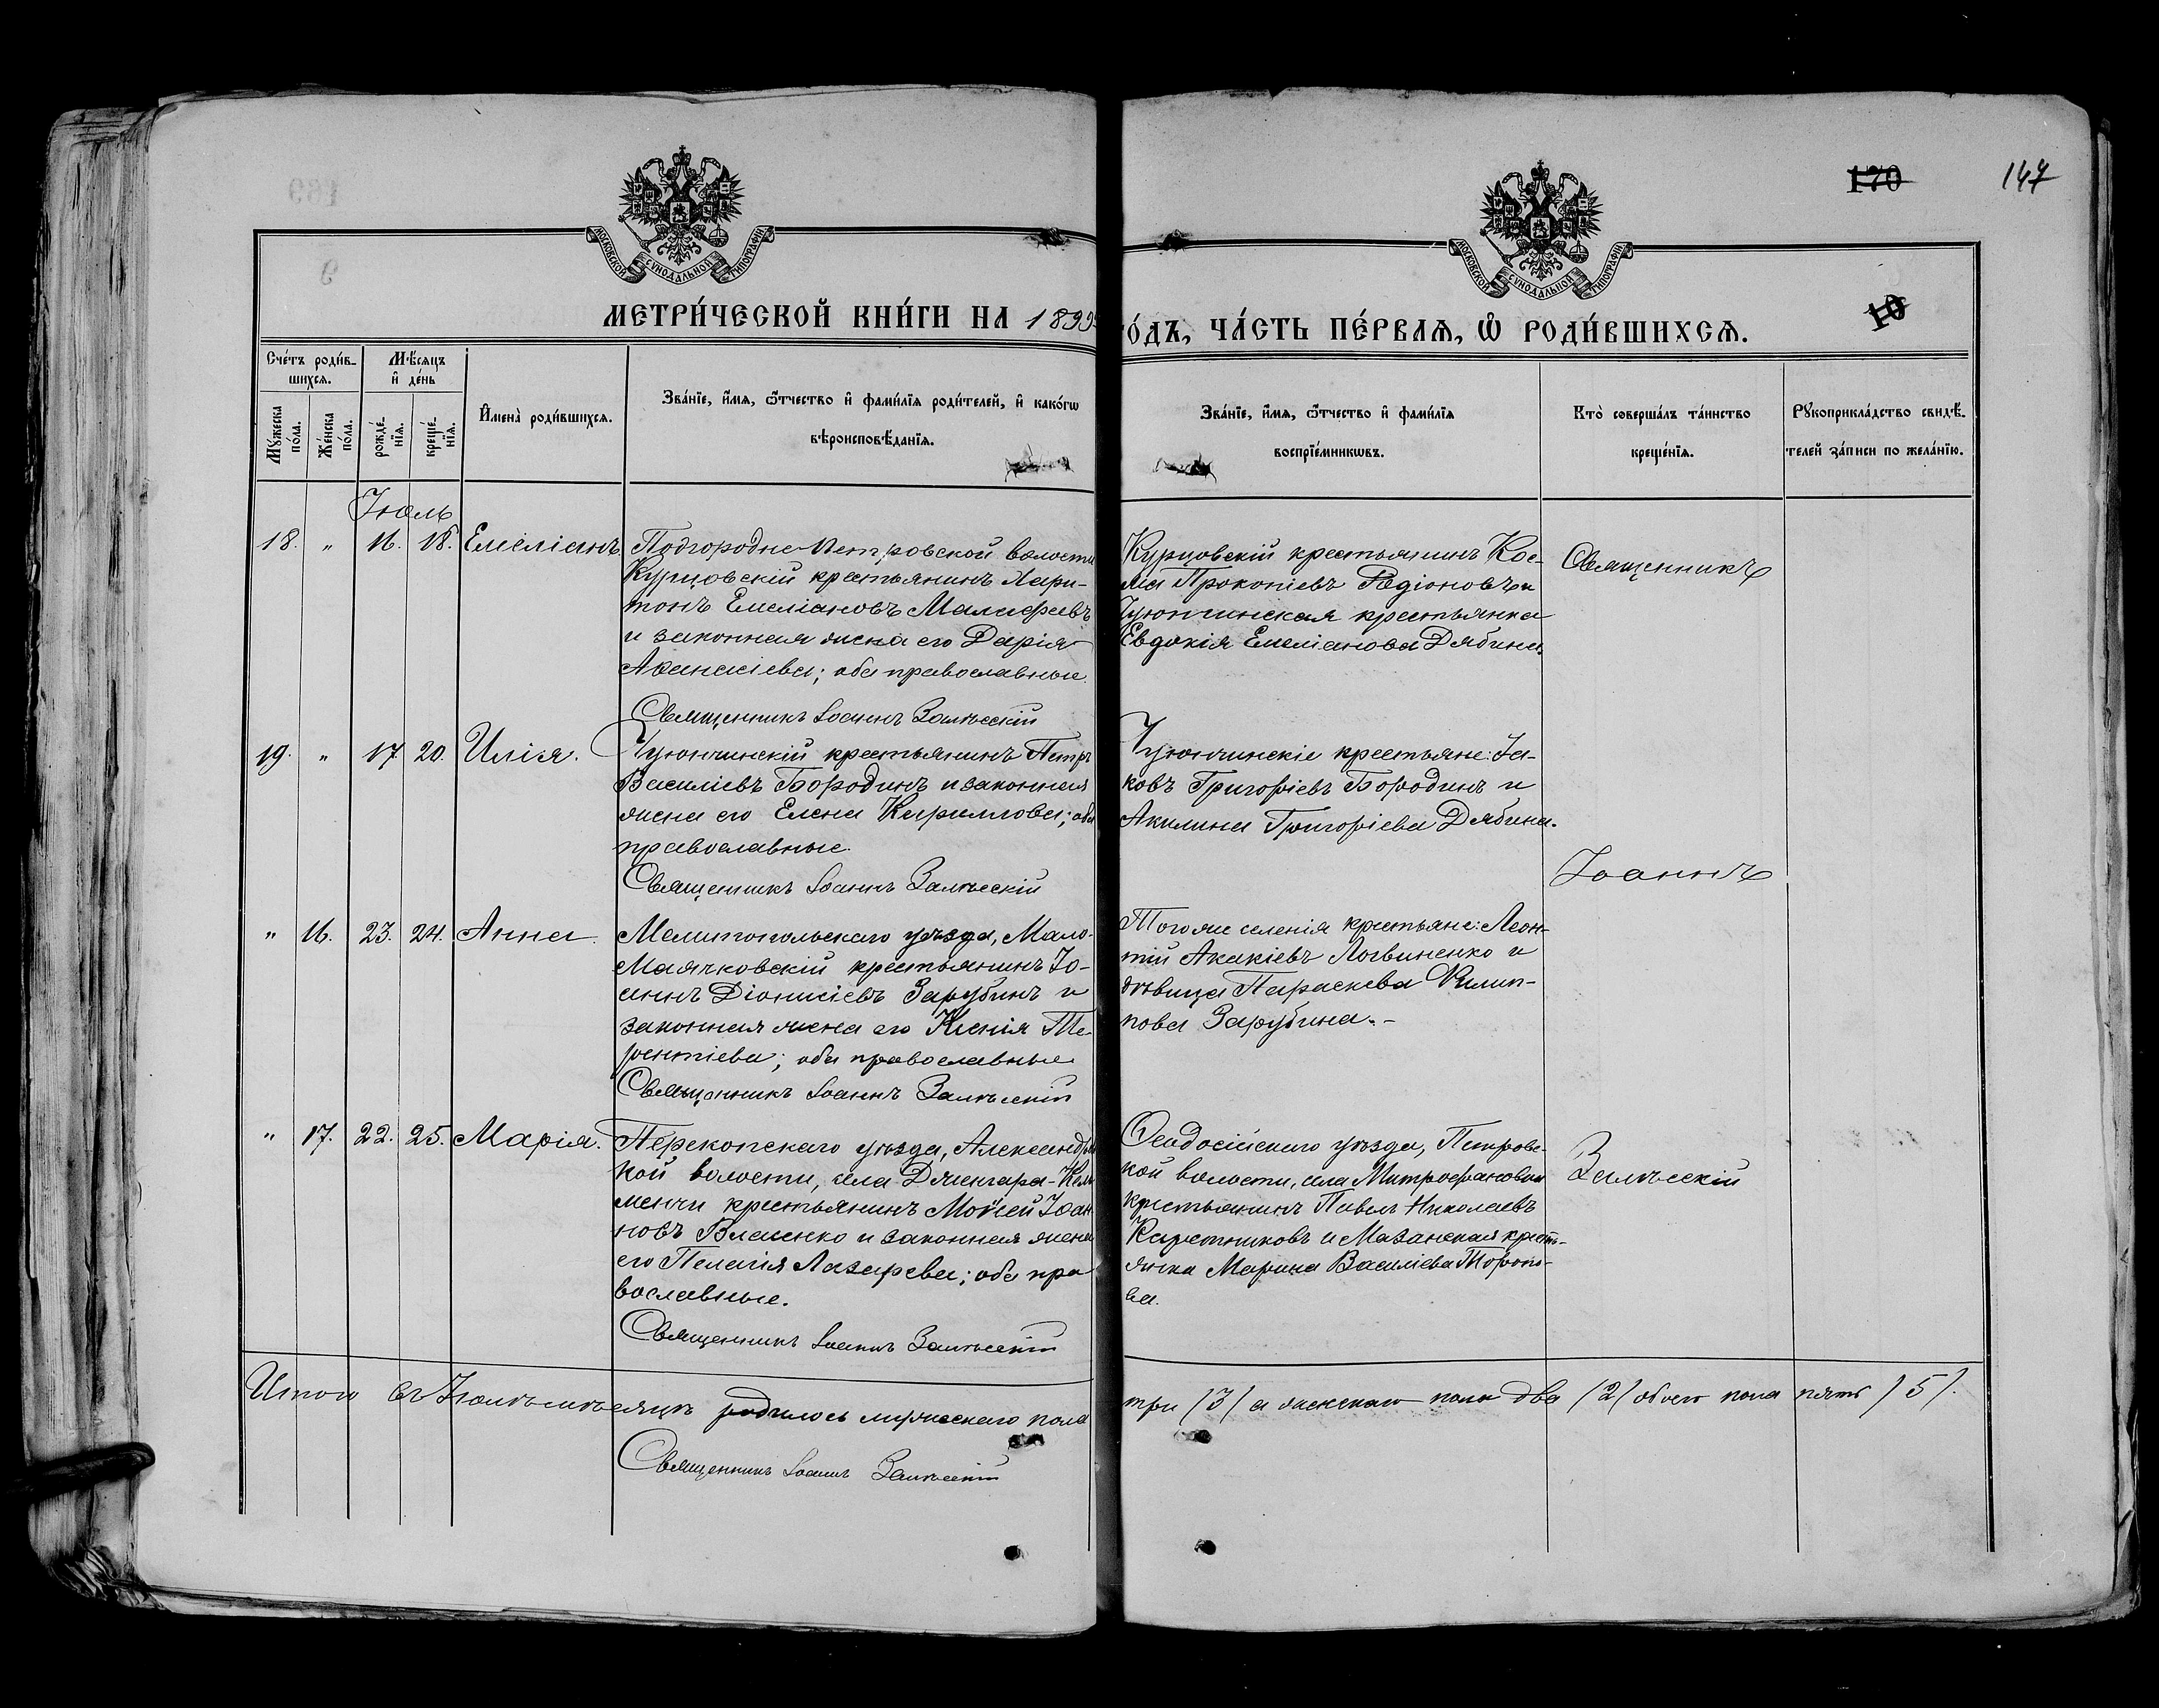 170
147
МОСКОВСКОЙ СУНОДАЛЬНОЙ ТИПОГРАФІИ
МОСКОВСКОЙ СУНОДАЛЬНОЙ ТИПОГРАФІИ
10
МЕТРИ́ЧЕСКОЙ КНИ́ГИ НА 1899
ГО́ДЪ, ЧА́СТЬ ПЕ́РВАѦ, Ѡ҆ РОДИ́ВШИХСѦ.
Сче́тъ роди́в-
шихсѧ.
Мѣ́сѧцъ
и҆ де́нь
Мꙋ́жеска
по́ла.
Же́нска
по́ла.
рожде́-
нїѧ.
креще́-
нїѧ.
И҆мена̀ роди́вшихсѧ.
Зва́нїе, и҆́мѧ, ѻ҆́тчество и҆ фами́лїѧ роди́телей, и҆ како́гѡ
вѣроисповѣ́данїѧ.
Зва́нїе, и҆́мѧ, ѻ҆́тчество и҆ фами́лїѧ
воспрїе́мникѡвъ.
Кто̀ соверша́лъ та́инство
креще́нїѧ.
Рꙋкоприкла́дство свидѣ́-
телей за́писи по жела́нїю.
Іюль
18. " 16. 18. Емеліанъ
Подгородне-Петровской волости
Курцовскій крестьянинъ Хари-
тонъ Емеліановъ Малафеевъ
и законная жена его Дарія
Аѳанасіева; оба православные.
Священникъ Іоаннъ Залѣсскій
Курцовскій крестьянинъ Кос-
ма Прокопіевъ Родіоновъ и
Чуюнчинская крестьянка
Евдокія Емеліанова Дябина.
Священникъ
19. " 17. 20. Илія.
Чуюнчинскій крестьянинъ Петръ
Василіевъ Бородинъ и законная
жена его Елена Кириллова; оба
православные.
Священникъ Іоаннъ Залѣсскій
Чуюнчинскіе крестьяне: Іа-
ковъ Григоріевъ Бородинъ и
Акилина Григоріева Дябина.
Іоаннъ
" 16. 23. 24. Анна.
Мелитопольскаго уѣзда, Мало-
Маячковскій крестьянинъ Іо-
аннъ Діонисіевъ Зарубинъ и
законная жена его Ксенія Те-
рентіева; оба православные
Священникъ Іоаннъ Залѣсскій
Того же селенія крестьяне: Леон-
тій Акакіевъ Логвиненко и
дѣвица Параскева Филип-
пова Зарубина.-
" 17. 22. 25. Марія.
Перекопскаго уѣзда, Александров
кой волости, села Джангара-Кель
менчи крестьянинъ Мойсей Іоан
новъ Власенко и законная жена
его Пелагія Лазарева; оба пра
вославные.
Священникъ Іоаннъ Залѣсскій
Ѳеодосійскаго уѣзда, Петровс-
кой волости, села Митрофановки
крестьянинъ Павелъ Николаевъ
Каретниковъ и Мазанская кресть-
янка Марина Василіева Торопо-
ва.
Залѣсскій
Итого въ Іюлѣ мѣсяцѣ родилось мужескаго пола
три (3) а женскаго пола два (2) обоего пола пять (5).
Священникъ Іоаннъ Залѣсскій